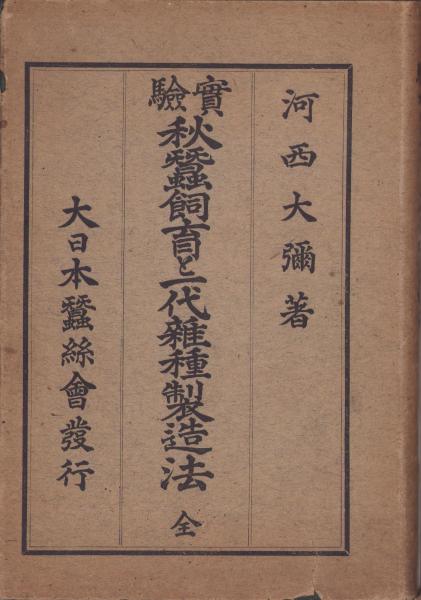 河西大彌著
實驗秋蠶飼育と一代雜種製造法 全
大日本蠶絲會發行